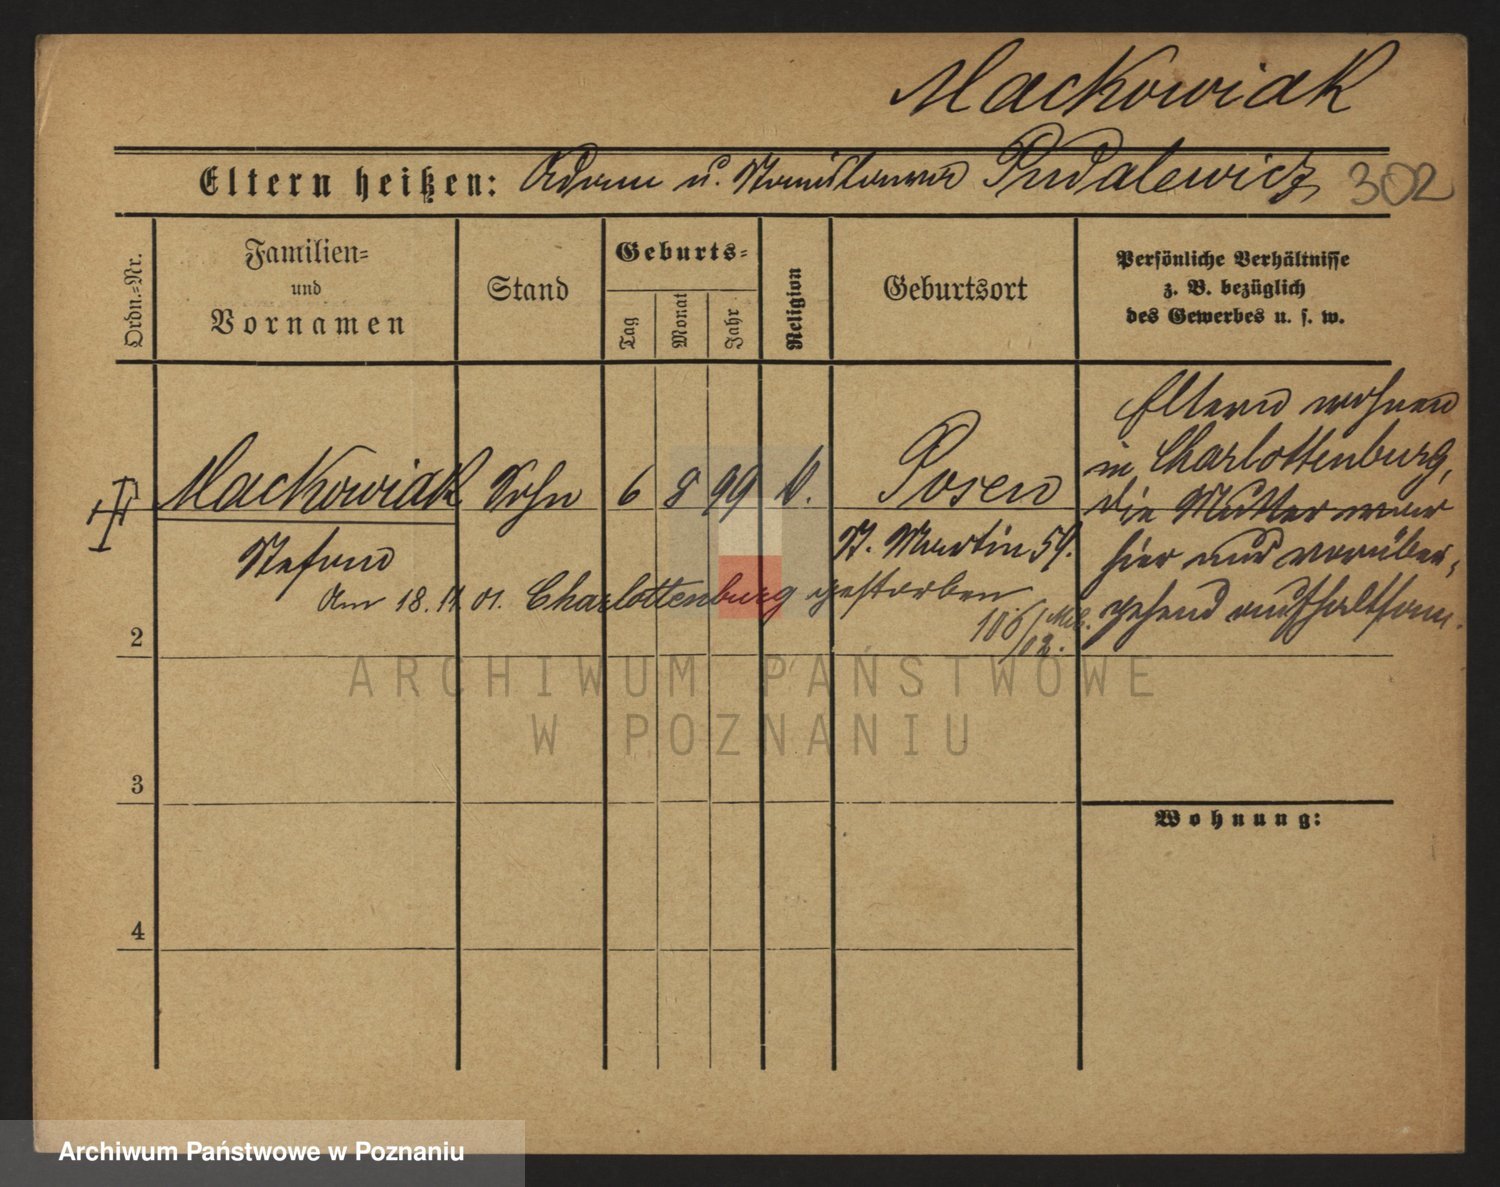 Mackowiak
Eltern heißen: Adam u. Stanislawa Pudalewicz 302
Ordn.-Nr.
Familien-
und
Vornamen
Stand
Geburts-
Tag
Monat
Jahr
Religion
Geburtsort
Persönliche Verhältnisse
z. B. bezüglich
des Gewerbes u. s. w.
Mackowiak Sohn 6 8 99 k. Posen
Stefan
St. Martin 54.
Am 18. 11. 01. Charlottenburg gestorben
106/02 Mel.
Eltern wohnen
in Charlottenburg,
die Mutter war
hier nur vorüber-
gehend aufhaltsam.
2
3
4
Wohnung:
ARCHIWUM PAŃSTWOWE
W POZNANIU
Archiwum Państwowe w Poznaniu